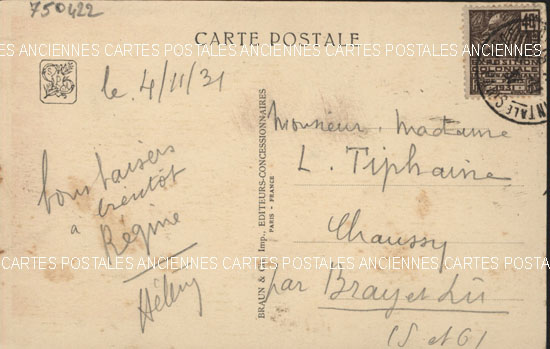 750422
CARTES POSTALES ANCIENNES CARTES POSTALES ANCIENNES CARTES POSTALES
CARTE POSTALE
le 4/11/31
bons baisers
a bientôt
Régine
Hélène
BRAUN & Cie Imp., EDITEURS-CONCESSIONNAIRES
PARIS - FRANCE
Monsieur, Madame
L. Tiphaine
Chaussy
par Bray et Lû
(S et O)
40c
EXPOSITION
COLONIALE
CARTES POSTALES ANCIENNES CARTES POSTALES ANCIENNES CARTES POSTALES